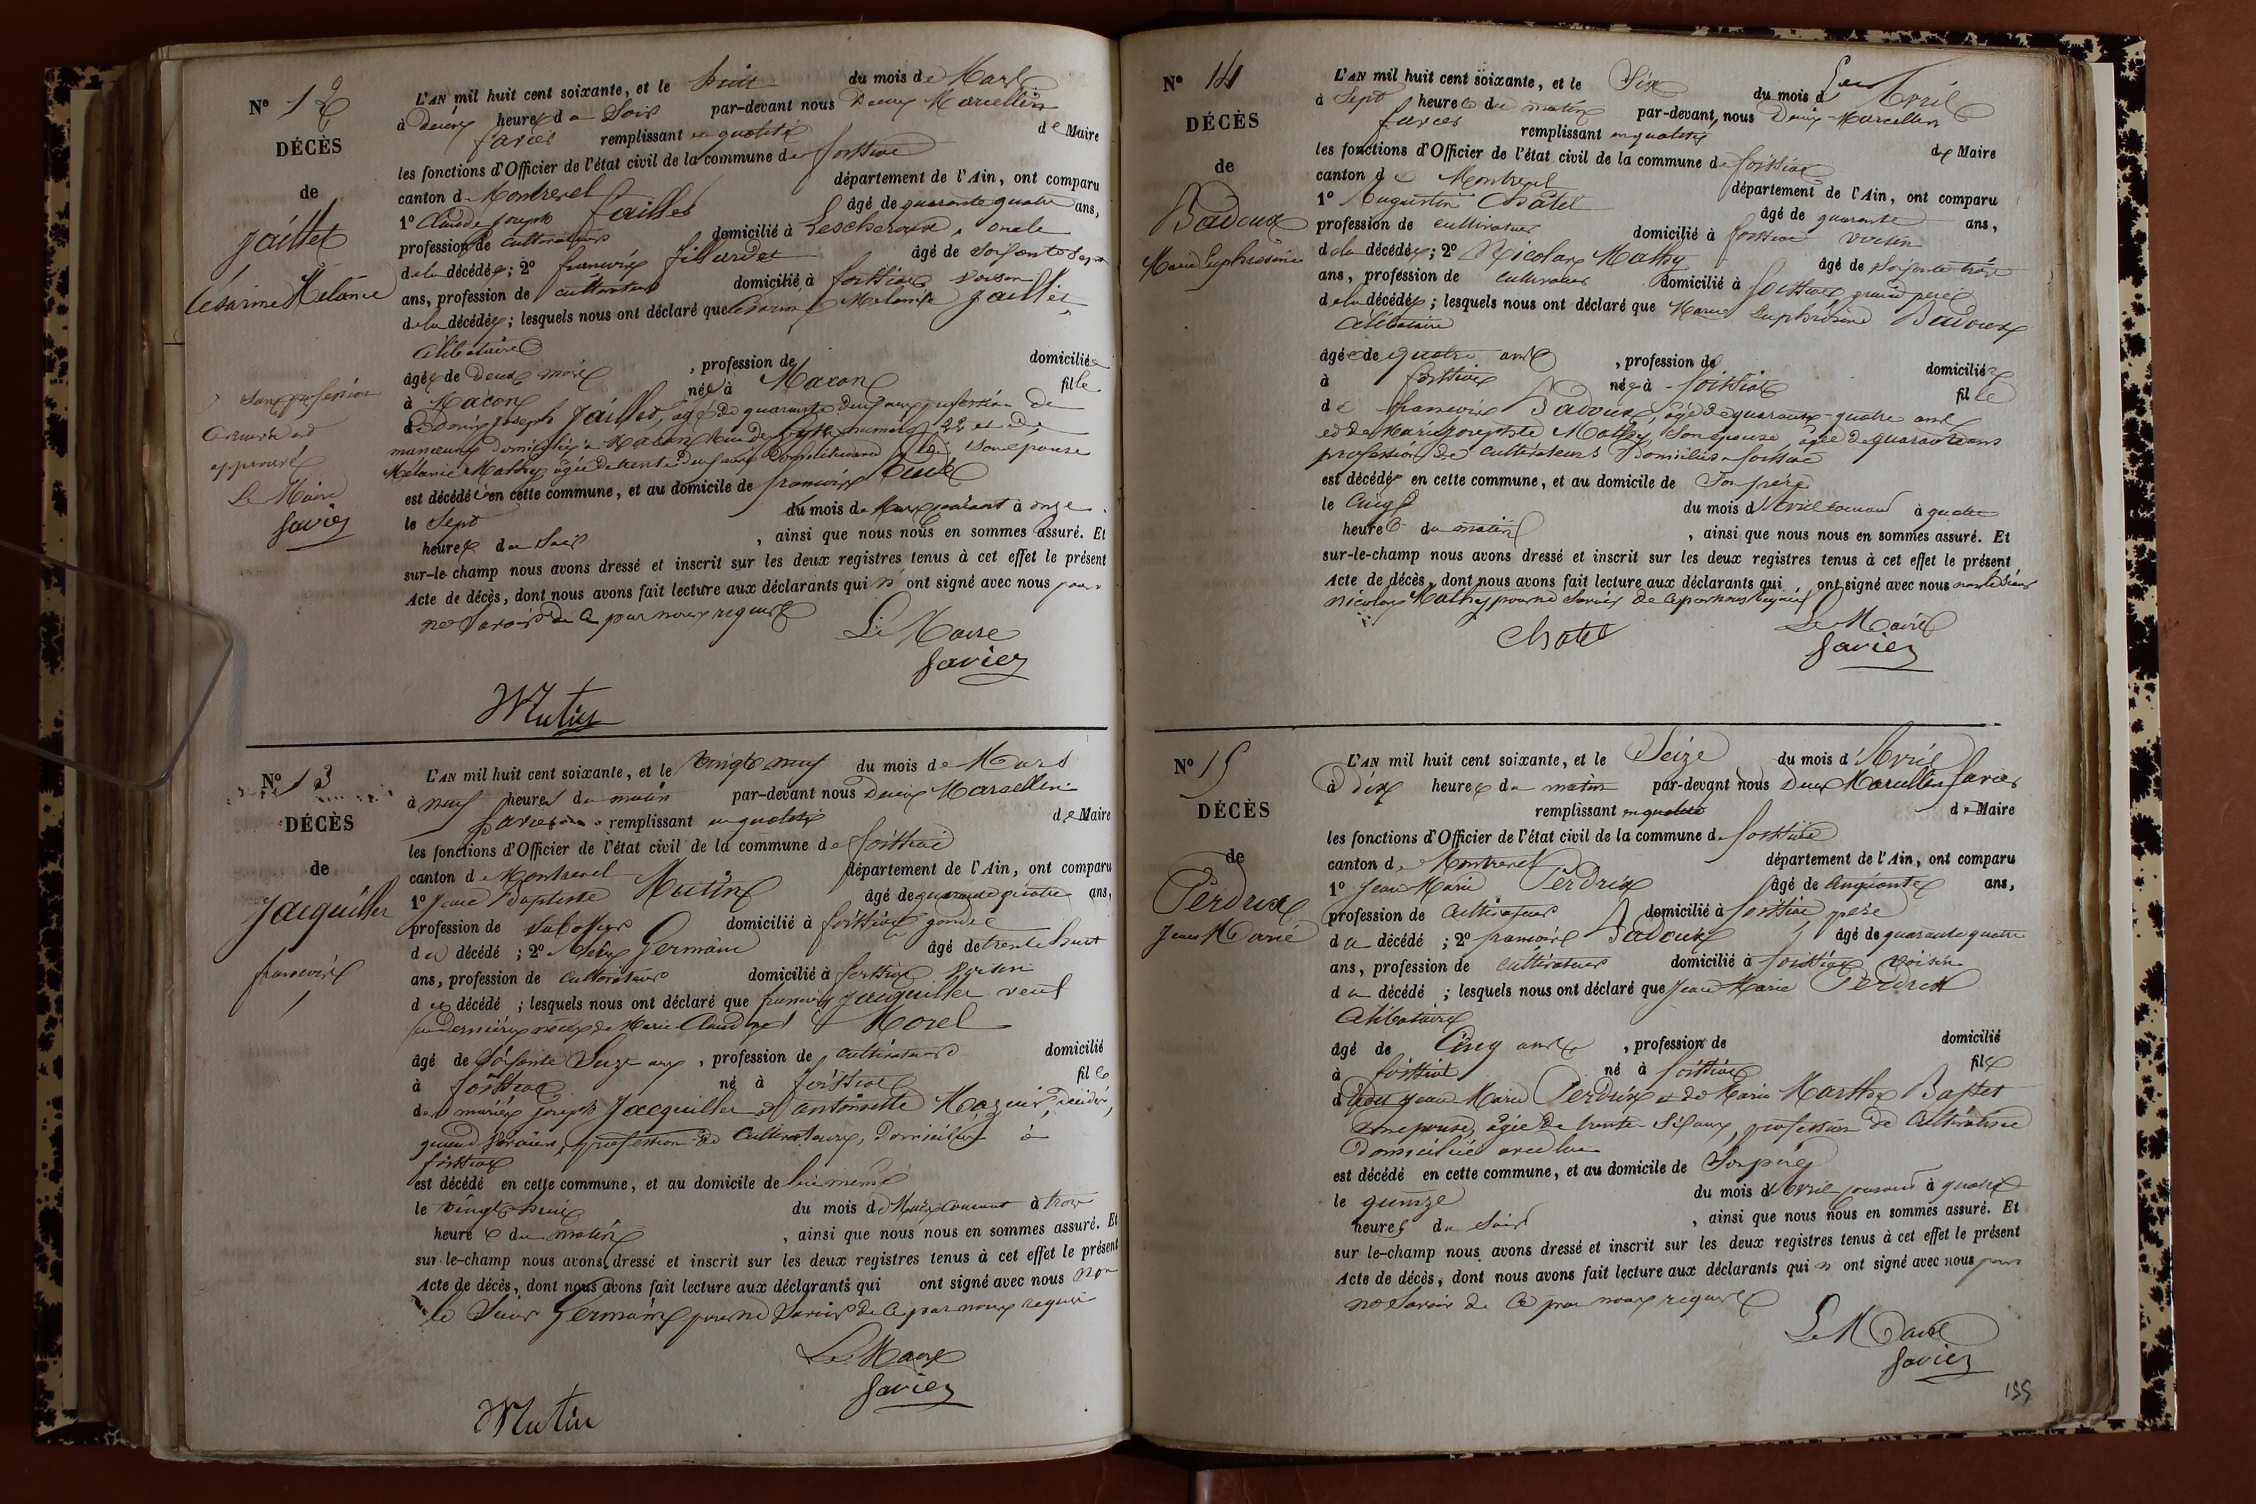 N° 12
DÉCÈS
de
Jaillet
Césarine Mélanie
Sans profession
approuvé
Le Maire
Savier
L'AN mil huit cent soixante, et le huit du mois de Mars
à deux heures du Soir par-devant nous Marcellin
Favier remplissant en qualité de Maire
les fonctions d'Officier de l'état civil de la commune de foissiat
canton de Montrevel département de l'Ain, ont comparu
1° Claude Joseph Jaillet âgé de quarante quatre ans,
profession de cultivateur domicilié à Lescheroux, oncle
de la décédée; 2° françois âgé de soixante
ans, profession de cultivateur domicilié à foissiat voisin
de la décédée; lesquels nous ont déclaré que Césarine Mélanie Jaillet
célibataire
âgée de deux mois, profession de domiciliée
à Macon née à Macon fille
de Joseph Jaillet, âgé de quarante deux ans profession de
manœuvre domicilié à Macon Rue de numéro 22 et de
Mélanie Mathy âgée de trente deux ans son épouse
est décédée en cette commune, et au domicile de françoise
le Sept du mois de Mars courant à onze
heures du Soir, ainsi que nous nous en sommes assuré. Et
sur-le-champ nous avons dressé et inscrit sur les deux registres tenus à cet effet le présent
Acte de décès, dont nous avons fait lecture aux déclarants qui n'ont signé avec nous pour
ne savoir de ce par nous requis
Le Maire
Savier
Mutin
N° 13
DÉCÈS
de
Jacquiller
françois
L'AN mil huit cent soixante, et le vingt neuf du mois de Mars
à neuf heures du matin par-devant nous Marcellin
Favier remplissant en qualité de Maire
les fonctions d'Officier de l'état civil de la commune de foissiat
canton de Montrevel département de l'Ain, ont comparu
1° Jean Baptiste Mutin âgé de quarante quatre ans,
profession de Sabotier domicilié à foissiat gendre
du décédé; 2° Germain âgé de trente huit
ans, profession de cultivateur domicilié à foissiat voisin
du décédé; lesquels nous ont déclaré que françois Jacquiller veuf
en dernières noces de Marie Claudine Morel
âgé de soixante Seize ans, profession de cultivateur domicilié
à foissiat né à foissiat fils
des mariés joseph Jacquiller et antoinette décédés,
quand vivaient, profession de cultivateurs, domiciliés à
foissiat
est décédé en cette commune, et au domicile de lui même
le vingt huit du mois de Mars courant à trois
heures du matin, ainsi que nous nous en sommes assuré. Et
sur-le-champ nous avons dressé et inscrit sur les deux registres tenus à cet effet le présent
Acte de décès, dont nous avons fait lecture aux déclarants qui ont signé avec nous non
le Sieur Germain pour ne savoir de ce par nous requis
Le Maire
Savier
Mutin
N° 14
DÉCÈS
de
Badoux
Marie Euphrosine
L'AN mil huit cent soixante, et le Six du mois d'Avril
à Sept heures du matin par-devant nous Marcellin
Favier remplissant en qualité de Maire
les fonctions d'Officier de l'état civil de la commune de foissiat
canton de Montrevel département de l'Ain, ont comparu
1° Augustin Châtel âgé de quarante ans,
profession de cultivateur domicilié à foissiat voisin
de la décédée; 2° Nicolas Mathy âgé de soixante treize
ans, profession de cultivateur domicilié à foissiat, grand père
de la décédée; lesquels nous ont déclaré que Marie Euphrosine Badoux
célibataire
âgée de quatre ans, profession de domiciliée
à foissiat née à foissiat fille
de françois Badoux, âgé de quarante-quatre ans
et de Marie Josephte Mathy, son épouse âgée de quarante ans
profession de cultivateurs domiciliés à foissiat
est décédée en cette commune, et au domicile de Son père
le Cinq du mois d'Avril courant à quatre
heures du matin, ainsi que nous nous en sommes assuré. Et
sur-le-champ nous avons dressé et inscrit sur les deux registres tenus à cet effet le présent
Acte de décès, dont nous avons fait lecture aux déclarants qui ont signé avec nous non le Sieur
Nicolas Mathy pour ne savoir de ce par nous requis
Le Maire
Savier
Chatel
N° 15
DÉCÈS
de
Perdrix
Jean Marie
L'AN mil huit cent soixante, et le Seize du mois d'Avril
à dix heures du matin par-devant nous Marcellin Favier
remplissant en qualité de Maire
les fonctions d'Officier de l'état civil de la commune de foissiat
canton de Montrevel département de l'Ain, ont comparu
1° Jean Marie Perdrix âgé de cinquante ans,
profession de cultivateur domicilié à foissiat, père
du décédé; 2° françois Badoux âgé de quarante quatre
ans, profession de cultivateur domicilié à foissiat voisin
du décédé; lesquels nous ont déclaré que Jean Marie Perdrix
célibataire
âgé de Cinq ans, profession de domicilié
à foissiat né à foissiat fils
dudit Jean Marie Perdrix et de Marie Marthe Baffet
Son épouse, âgée de trente-Six ans, profession de cultivatrice
domiciliée avec lui
est décédé en cette commune, et au domicile de Son père
le quinze du mois d'Avril courant à quatre
heures du Soir, ainsi que nous nous en sommes assuré. Et
sur le-champ nous avons dressé et inscrit sur les deux registres tenus à cet effet le présent
Acte de décès, dont nous avons fait lecture aux déclarants qui n'ont signé avec nous pour
ne savoir de ce par nous requis
Le Maire
Savier
155